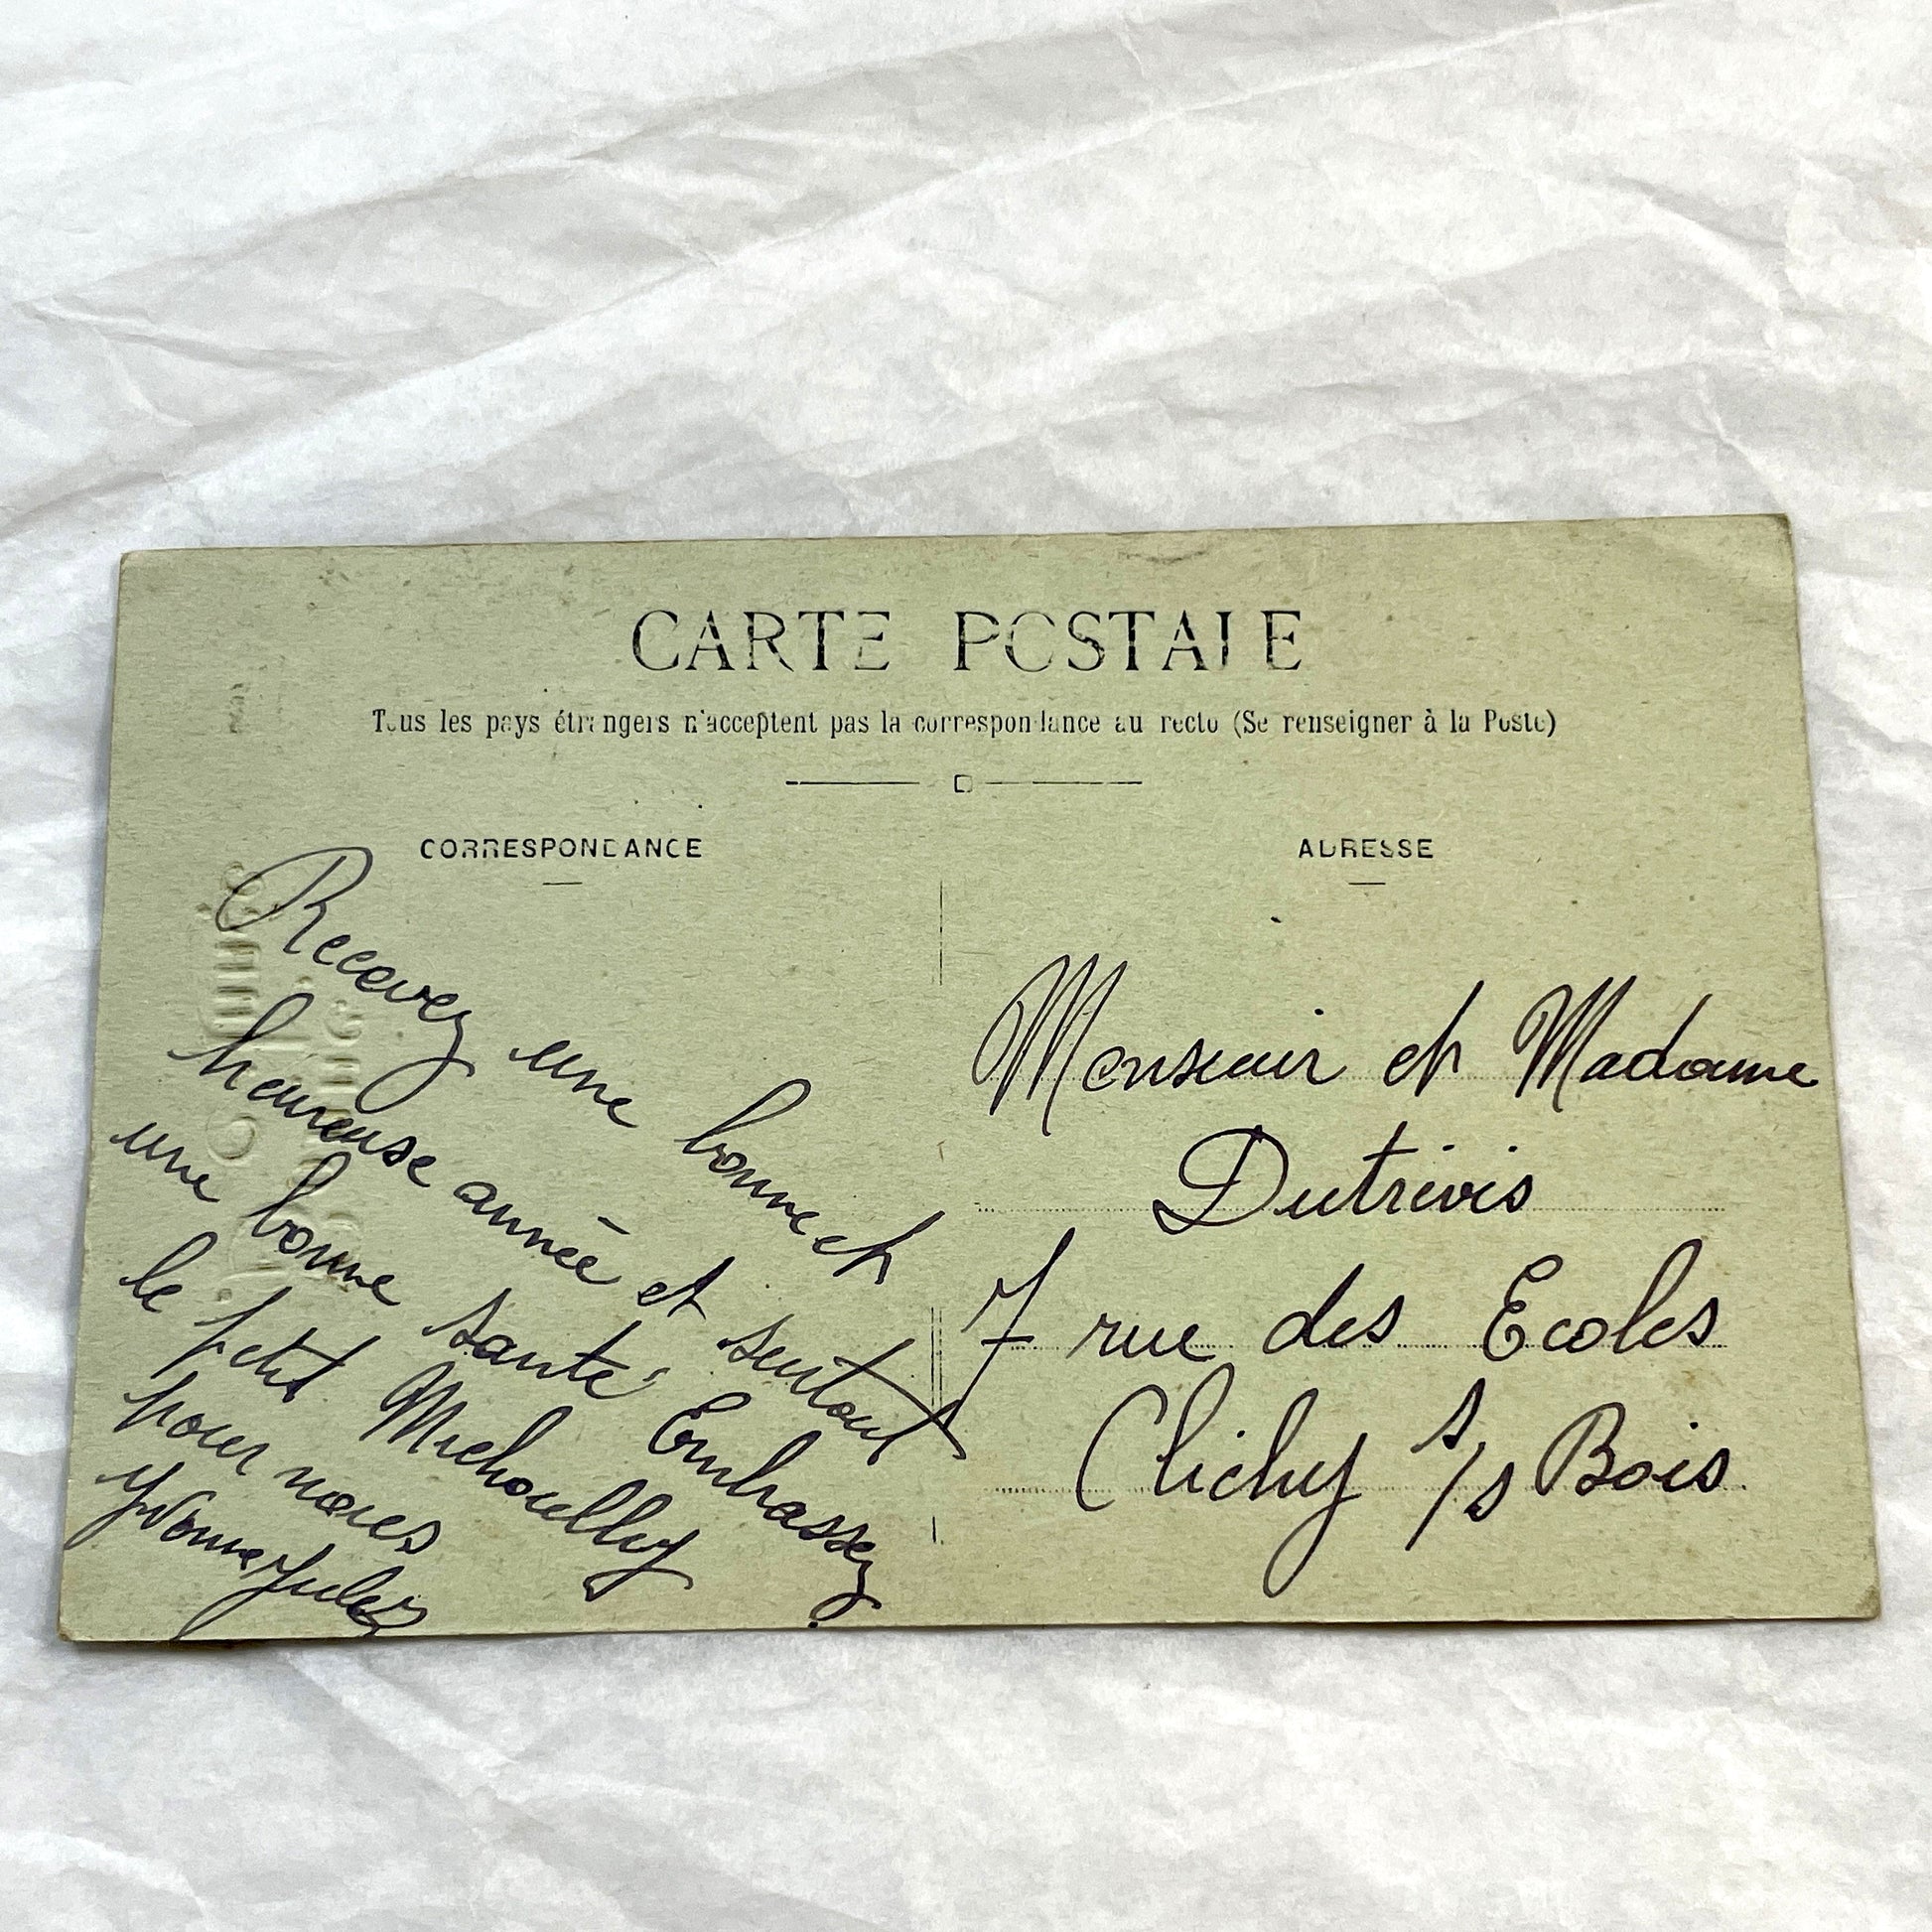 CARTE POSTALE
Tous les pays étrangers n'acceptent pas la correspondance au recto (Se renseigner à la Poste)
CORRESPONDANCE
Recevez une bonne et
heureuse année et surtout
une bonne santé Embrassez
le petit Michoully
pour nous
Yvonne Jules
ADRESSE
Monsieur et Madame
Dutrivis
7 rue des Ecoles
Clichy s/s Bois